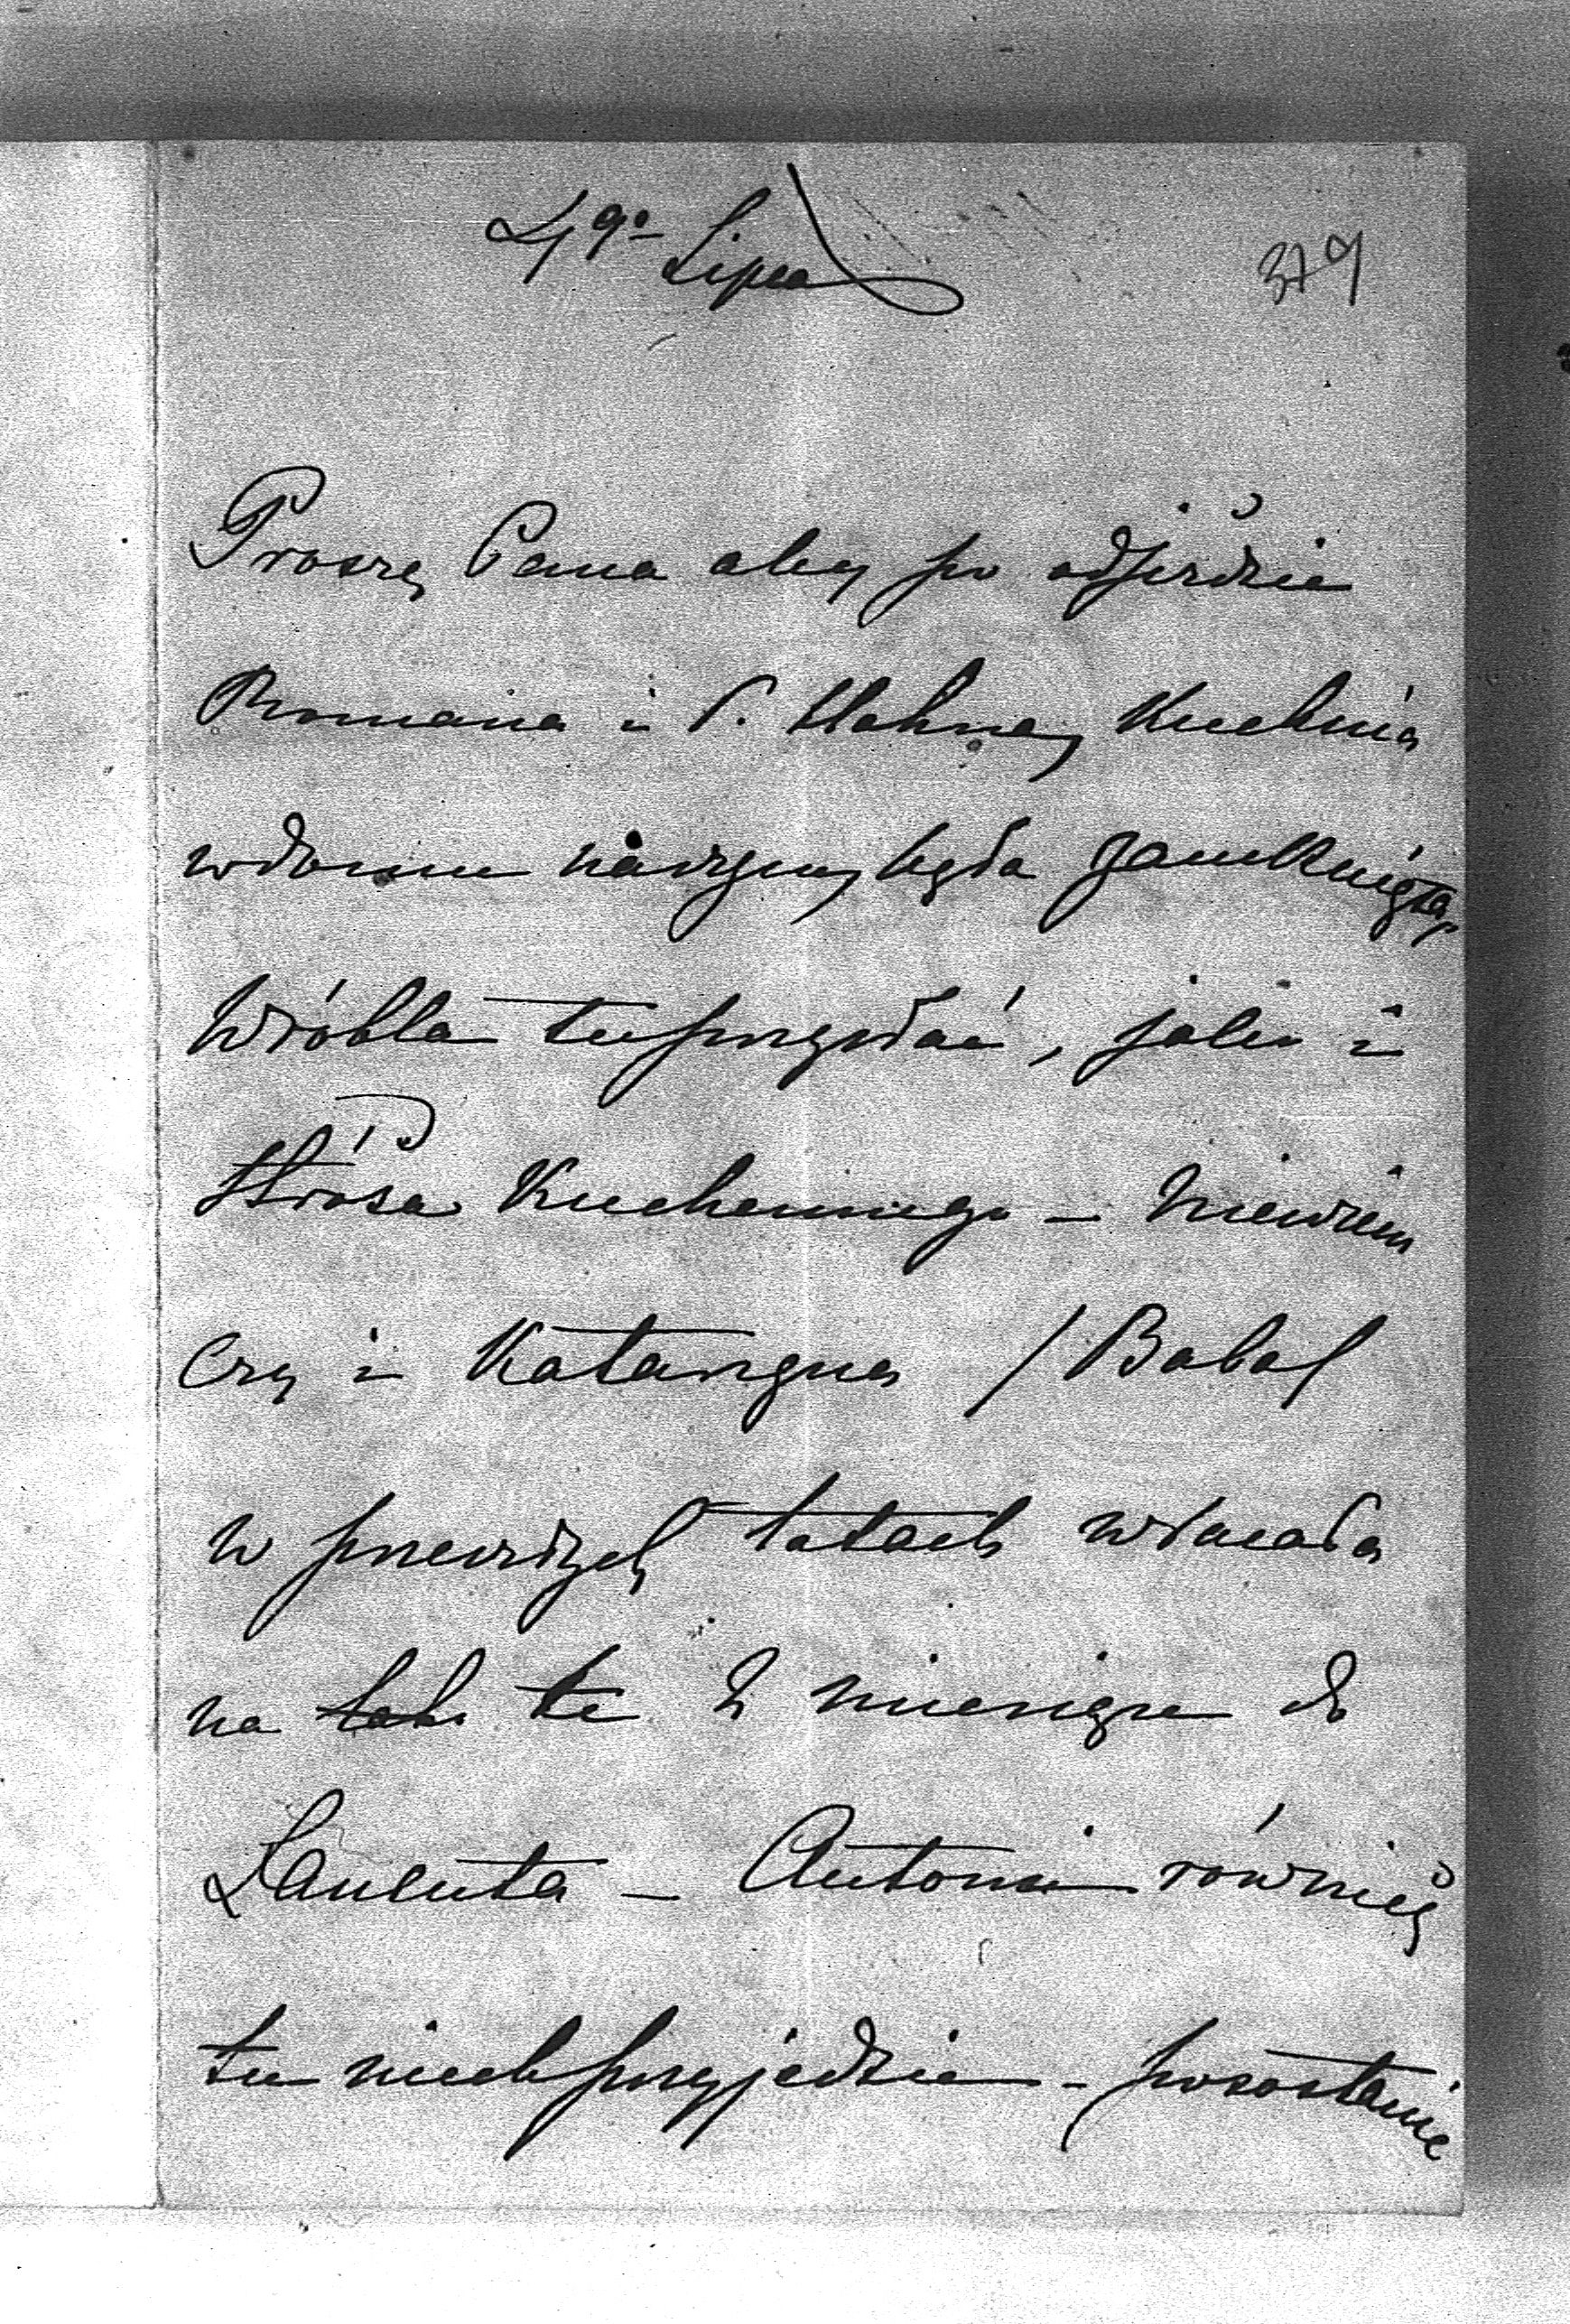 49º Lipca
379
Proszę Pana aby po odjeździe
Romana i P. Hahnaj Kuchnia
w domu naszym była zamknięta,
Wróbla tu przysłać, jako i
Stróża Kuchennego – niewiem
czy i Katarzyna /Baba/
w przeszłych latach wracała
na te 2 miesiące do
Łańcuta – Antoni również
tu niech przyjedzie – pozostanie